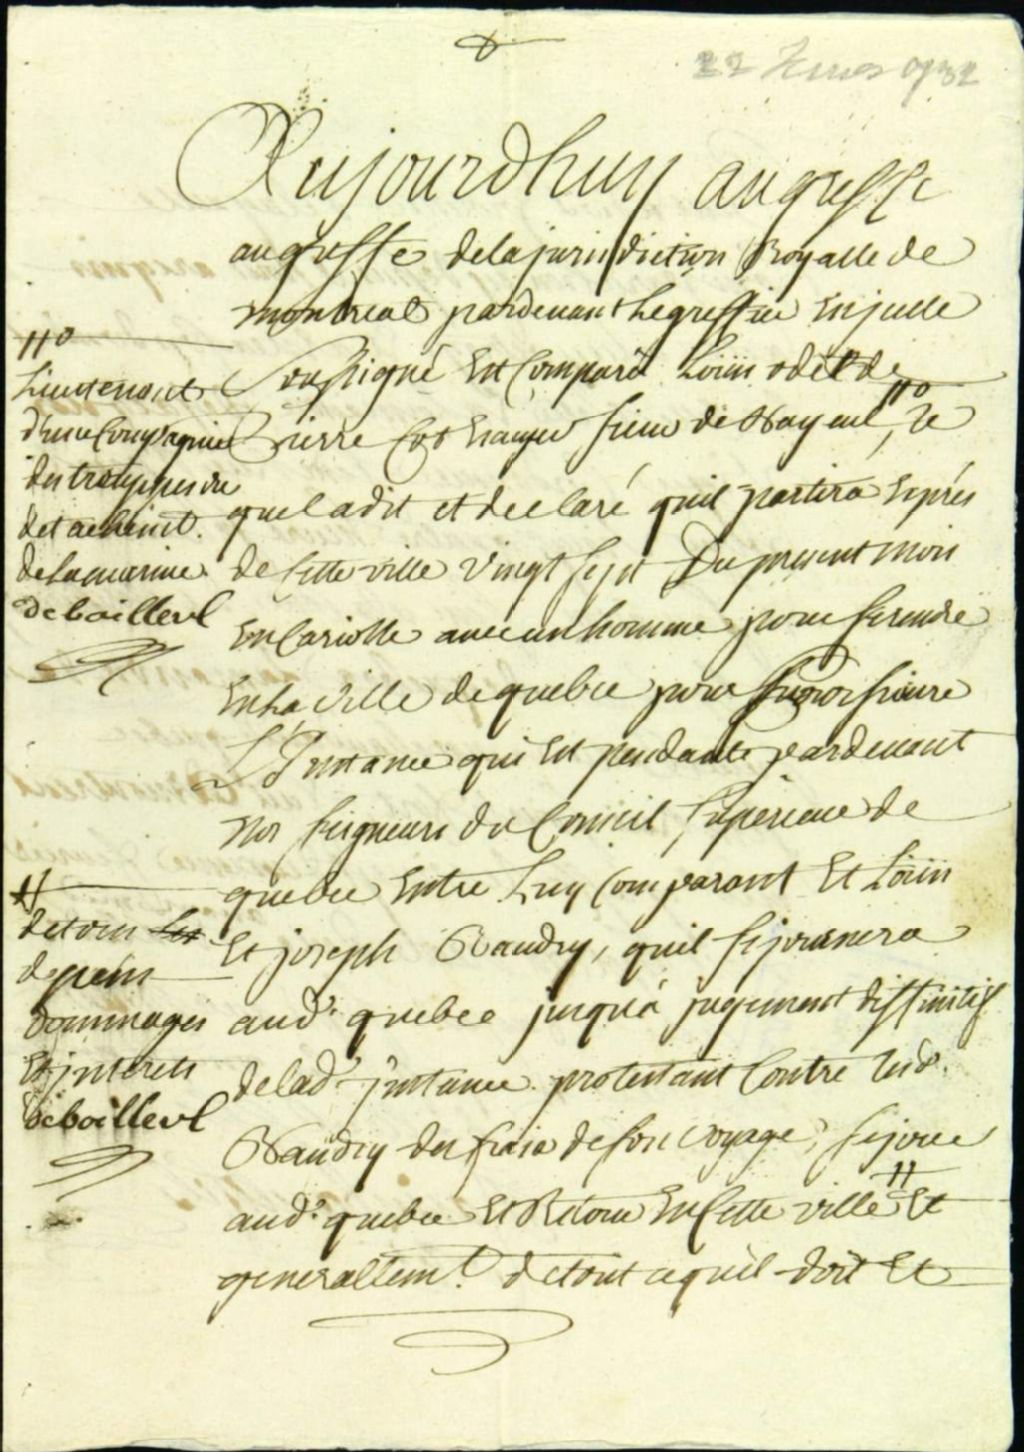 Aujourdhuy au greffe
au greffe de la jurisdiction Royalle de
montreal pardevant le greffier en jcelle
Soussigné Est Comparu Loüis
Pierre sieur de Bayeul, Le
quel a dit et declaré quil partira Exprés
de Cette ville Vingt sept Du present mois
En Cariolle avec un homme pour se rendre
En La Ville de quebec pour
L'Instance qui Est pendante pardevant
Nos seigneurs du Conseil superieur de
quebec Entre Luy Comparant Et Loüis
Et joseph Baudry, quil sejournera
aud. quebec jusqu'a jugement diffinitif
de lad. jnstance protestant Contre lesd.
Baudry des frais de son voyage, sejour
aud. quebec Et Retour En Cette ville // Et
generallemt. de tout ce quil doit Et
Lieutenant
d'une Compagnie
des trouppes du
detachemt.
de la marine
de bailleul
//
de tous
depens
dommages
Et jnterets
debailleul